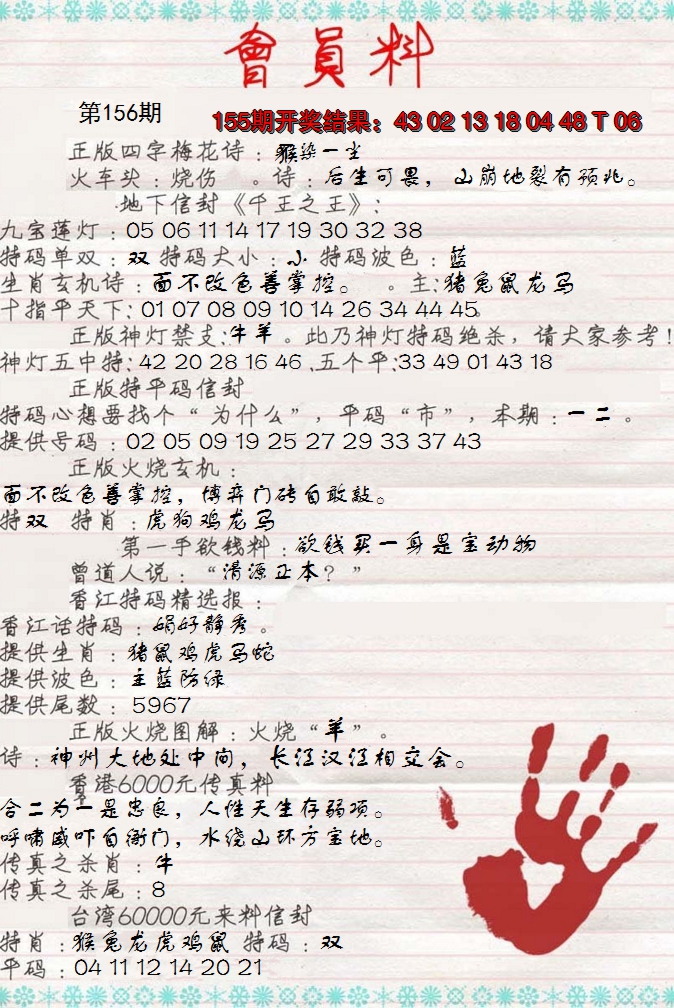 會員料
第156期
155期开奖结果：43 02 13 18 04 48 T 06
正版四字梅花诗：猴染一尘
火车头：烧伤 。诗：后生可畏，山崩地裂有预兆。
地下信封《千王之王》：
九宝莲灯：05 06 11 14 17 19 30 32 38
特码单双：双 特码大小：小 特码波色：蓝
生肖玄机诗：面不改色善掌控。 。主：猪兔鼠龙马
十指平天下：01 07 08 09 10 14 26 34 44 45。
正版神灯禁支：牛羊。此乃神灯特码绝杀，请大家参考！
神灯五中特：42 20 28 16 46 .五个平：33 49 01 43 18
正版特平码信封
特码心想要找个“为什么”，平码“市”，本期：一二。
提供号码：02 05 09 19 25 27 29 33 37 43
正版火烧玄机：
面不改色善掌控，博弈门砖自敢敲。
特双 特肖：虎狗鸡龙马
第一手欲钱料：欲钱买一身是宝动物
曾道人说：“清源正本？”
香江特码精选报：
香江话特码：娟好静秀。
提供生肖：猪鼠鸡虎马蛇
提供波色：主蓝防绿
提供尾数：5967
正版火烧图解：火烧“羊”。
诗：神州大地处中间，长江汉江相交会。
香港6000元传真料
合二为一是忠良，人性天生存弱项。
呼啸威吓自衙门，水绕山环方宝地。
传真之杀肖：牛
传真之杀尾：8
台湾60000元来料信封
特肖：猴兔龙虎鸡鼠 特码：双
平码：04 11 12 14 20 21